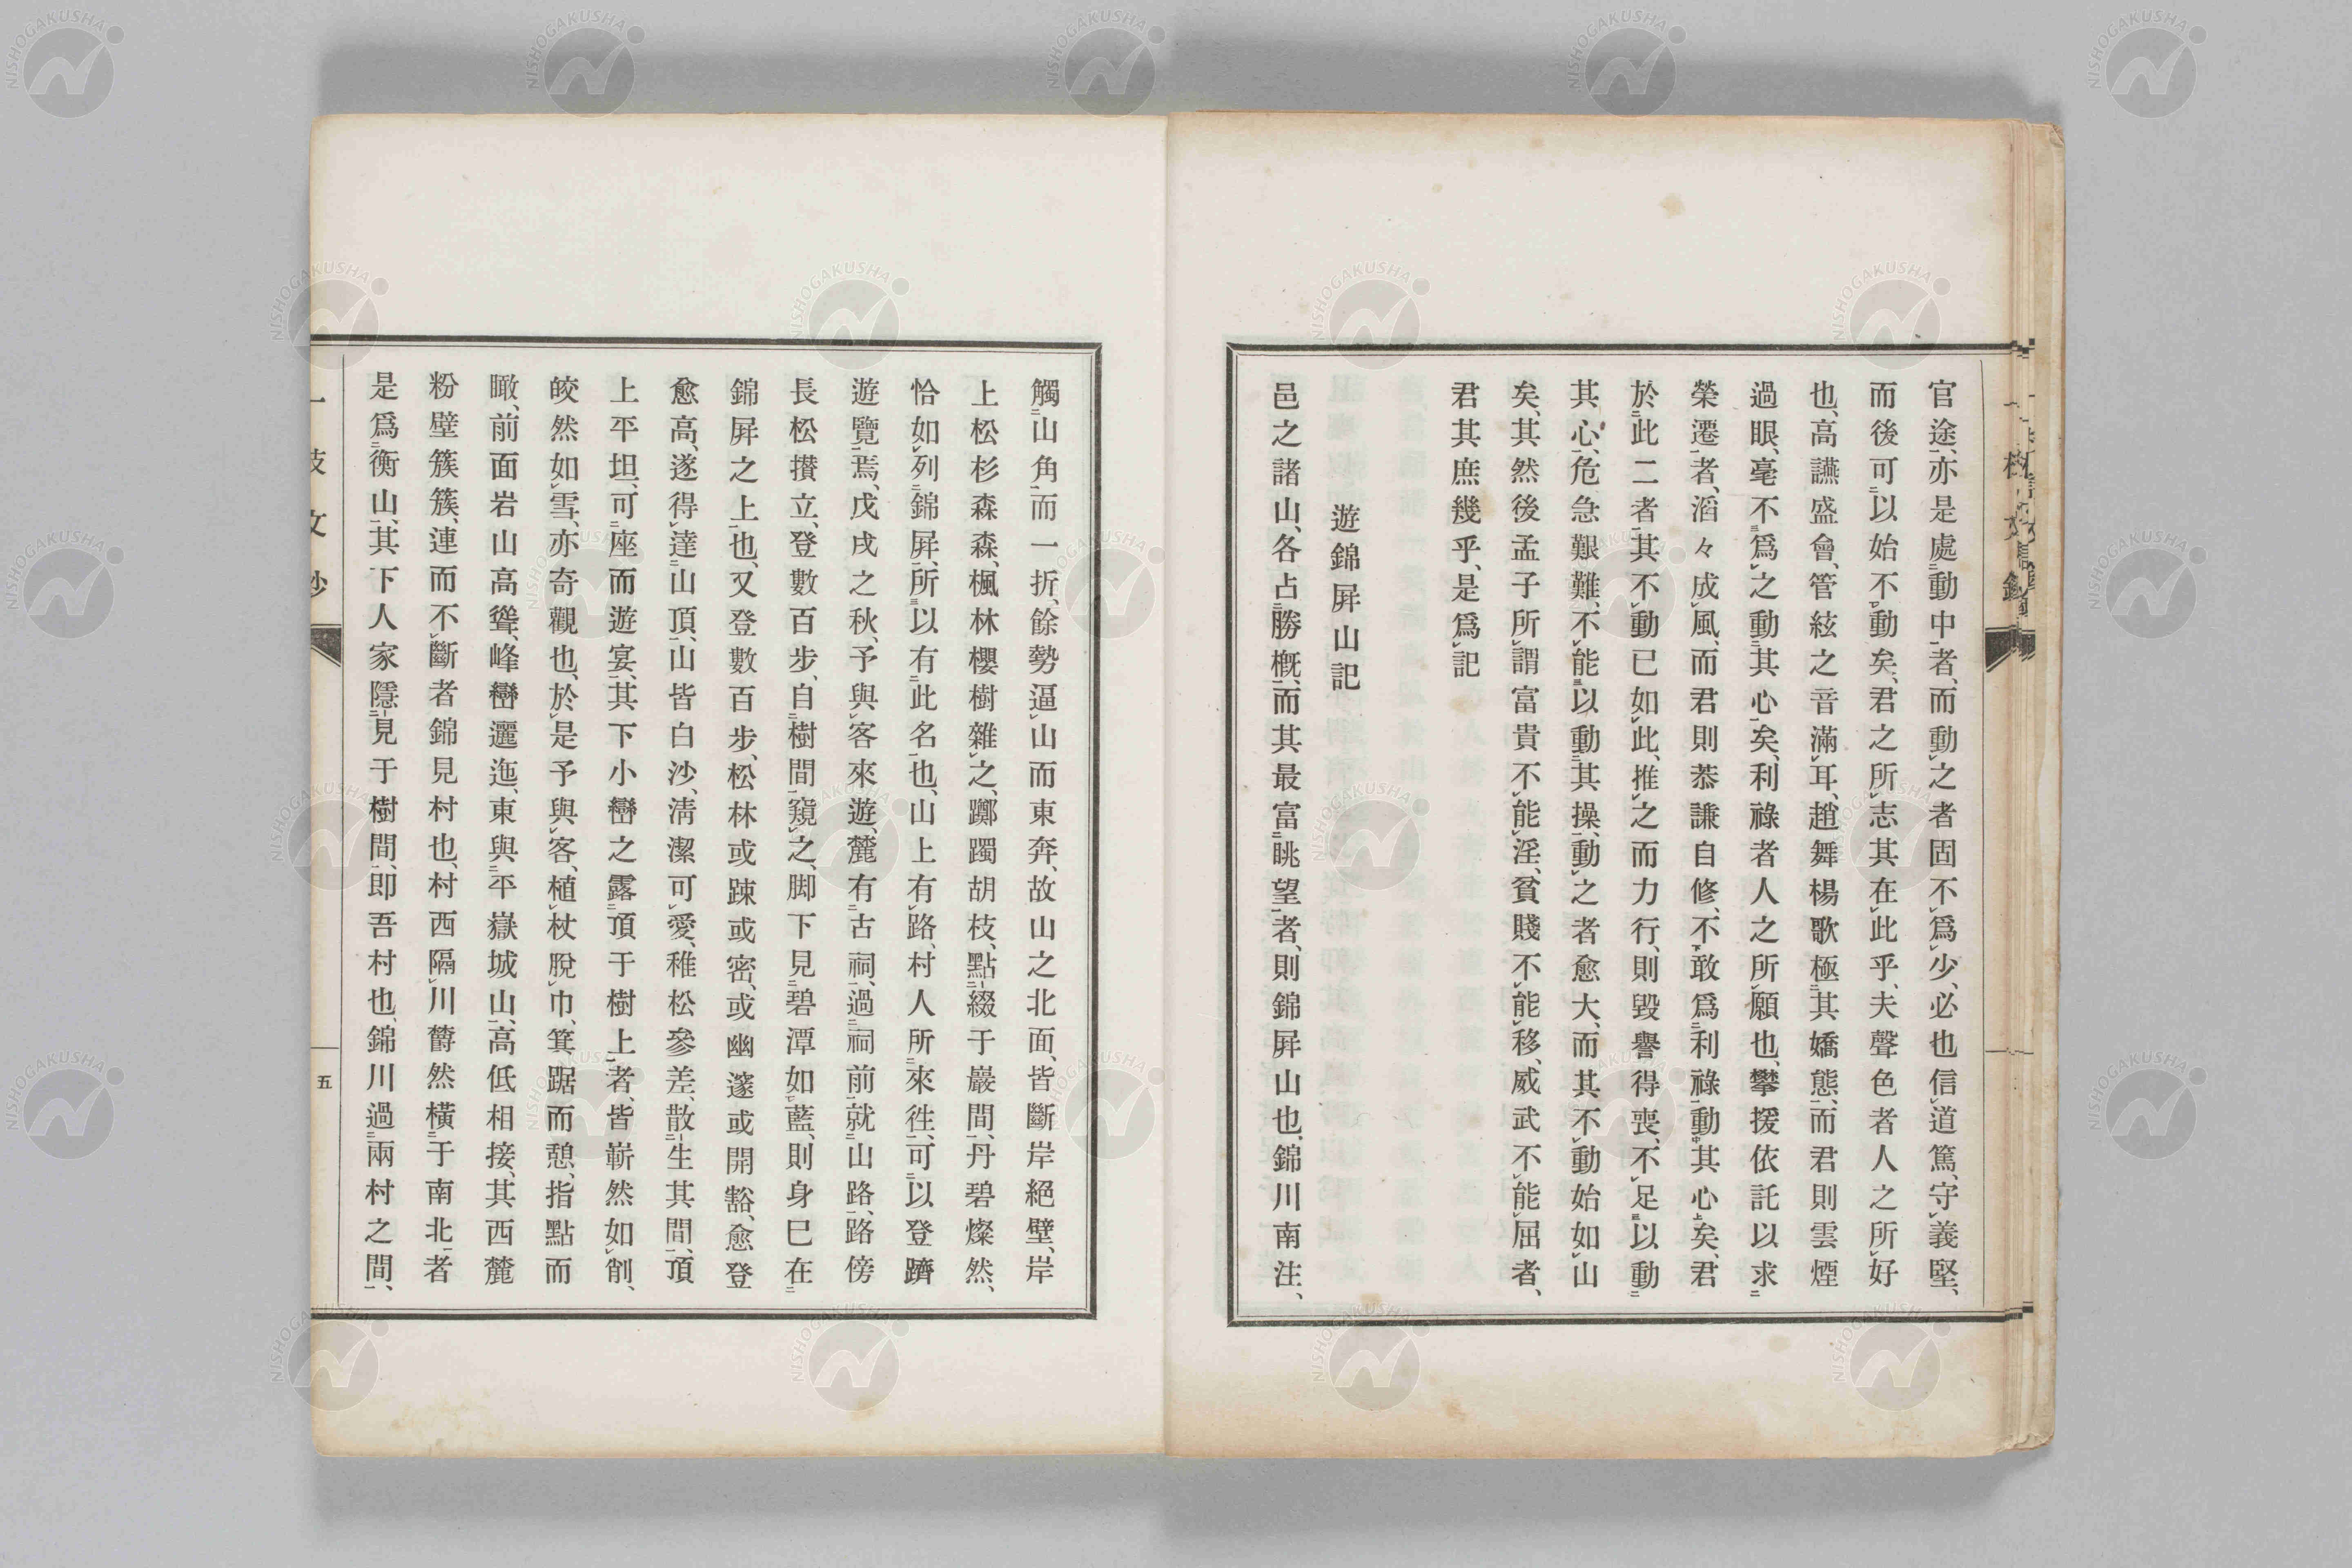 官途、亦是處動中者、而動之者固不爲少、必也信道篤、守義堅、
而後可以始不動矣、君之所志其在此乎、夫聲色者人之所好
也、高讌盛會、管絃之音滿耳、趙舞楊歌極其嬌態、而君則雲煙
過眼、毫不爲之動其心矣、利祿者人之所願也、攀援依託以求
榮遷者、滔々成風、而君則恭謙自修、不敢爲利祿動其心矣、君
於此二者、其不動已如此、推之而力行、則毀譽得喪、不足以動
其心、危急艱難、不能以動其操、動之者愈大、而其不動始如山
矣、其然後孟子所謂富貴不能淫、貧賤不能移、威武不能屈者、
君其庶幾乎、是爲記
遊錦屏山記
邑之諸山、各占勝概、而其最富眺望者、則錦屏山也、錦川南注、
觸山角而一折、餘勢逼山而東奔、故山之北面、皆斷岸絕壁、岸
上松杉森森、楓林櫻樹雜之、躑躅胡枝、點綴于巖間、丹碧燦然、
恰如列錦屏、所以有此名也、山上有路、村人所來徃、可以登躋
遊覽焉、戊戌之秋、予與客來遊、麓有古祠、過祠前就山路、路傍
長松攅立、登數百步、自樹間窺之、脚下見碧潭如藍、則身已在
錦屏之上也、又登數百步、松林或踈或密、或幽邃或開豁、愈登
愈高、遂得達山頂、山皆白沙、淸潔可愛、稚松參差、散生其間、頂
上平坦、可座而遊宴、其下小巒之露頂于樹上者、皆嶄然如削、
皎然如雪、亦奇觀也、於是予與客、植杖脫巾、箕踞而憩、指點而
瞰、前面岩山高聳、峰巒邐迤、東與平嶽城山、高低相接、其西麓
粉壁簇簇、連而不斷者錦見村也、村西隔川欝然橫于南北者
是爲衡山、其下人家隱見于樹間、卽吾村也、錦川過兩村之間、
一枝文鈔
五
NISHOGAKUSHA